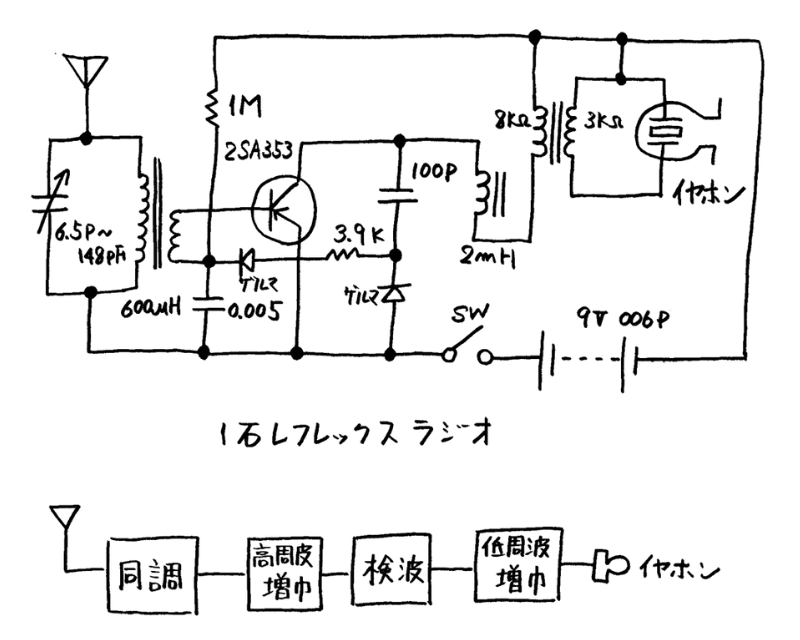 1M
2SA353
8KΩ
3KΩ
イヤホン
100P
6.5P~
148PF
3.9K
2mH
600μH
ゲルマ
ゲルマ
0.005
SW
9V 006P
1石レフレックス ラジオ
同調
高周波
増巾
検波
低周波
増巾
イヤホン